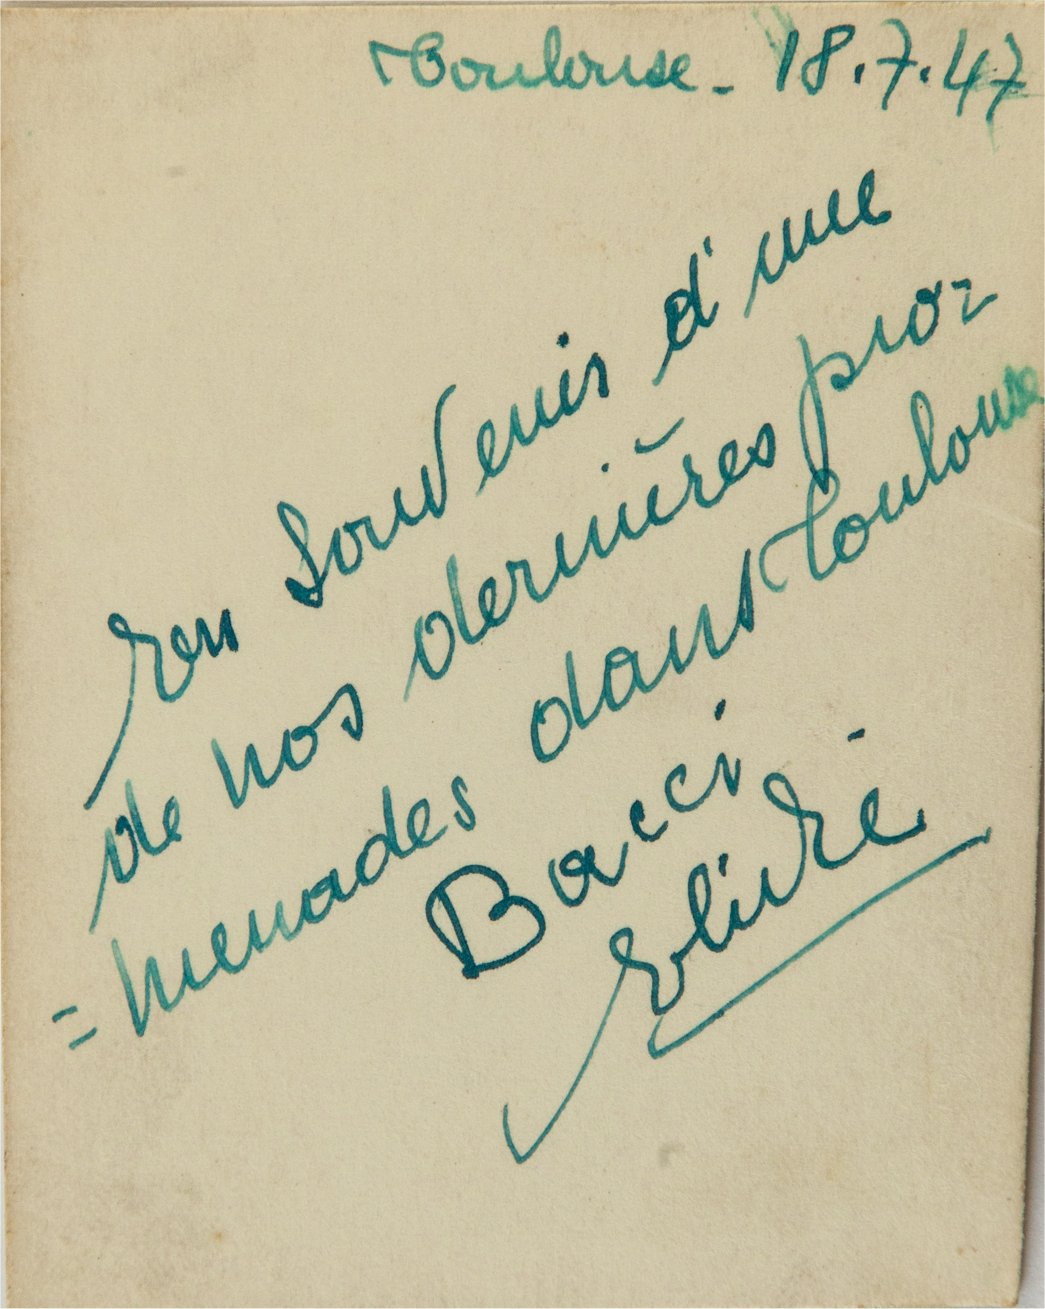 Toulouse - 18.7.47
En Souvenir d'une
de nos dernières pro=
=menades dans Toulouse
Bacci